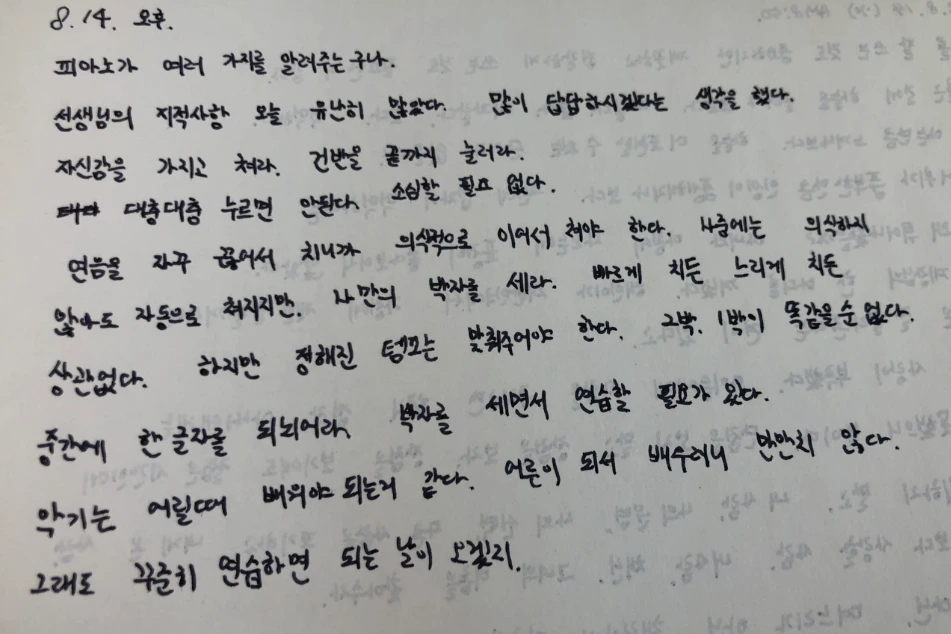 8.14. 오후.
피아노가 여러 가지를 알려주는구나.
선생님의 지적사항 오늘 유난히 많았다. 많이 답답하시겠다는 생각을 했다.
자신감을 가지고 쳐라. 건반을 끝까지 눌러라.
대충대충 누르면 안된다. 소심할 필요 없다.
연음을 자꾸 끊어서 치니까 의식적으로 이어서 쳐야 한다. 나중에는 의식하지
않아도 자동으로 쳐지지만. 나만의 박자를 세라. 빠르게 치든 느리게 치든
상관없다. 하지만 정해진 템포는 맞춰주어야 한다. 2박. 1박이 똑같을 순 없다.
중간에 한 글자를 되뇌어라. 박자를 세면서 연습할 필요가 있다.
악기는 어릴때 배워야 되는거 같다. 어른이 되서 배우려니 만만치 않다.
그래도 꾸준히 연습하면 되는 날이 오겠지.